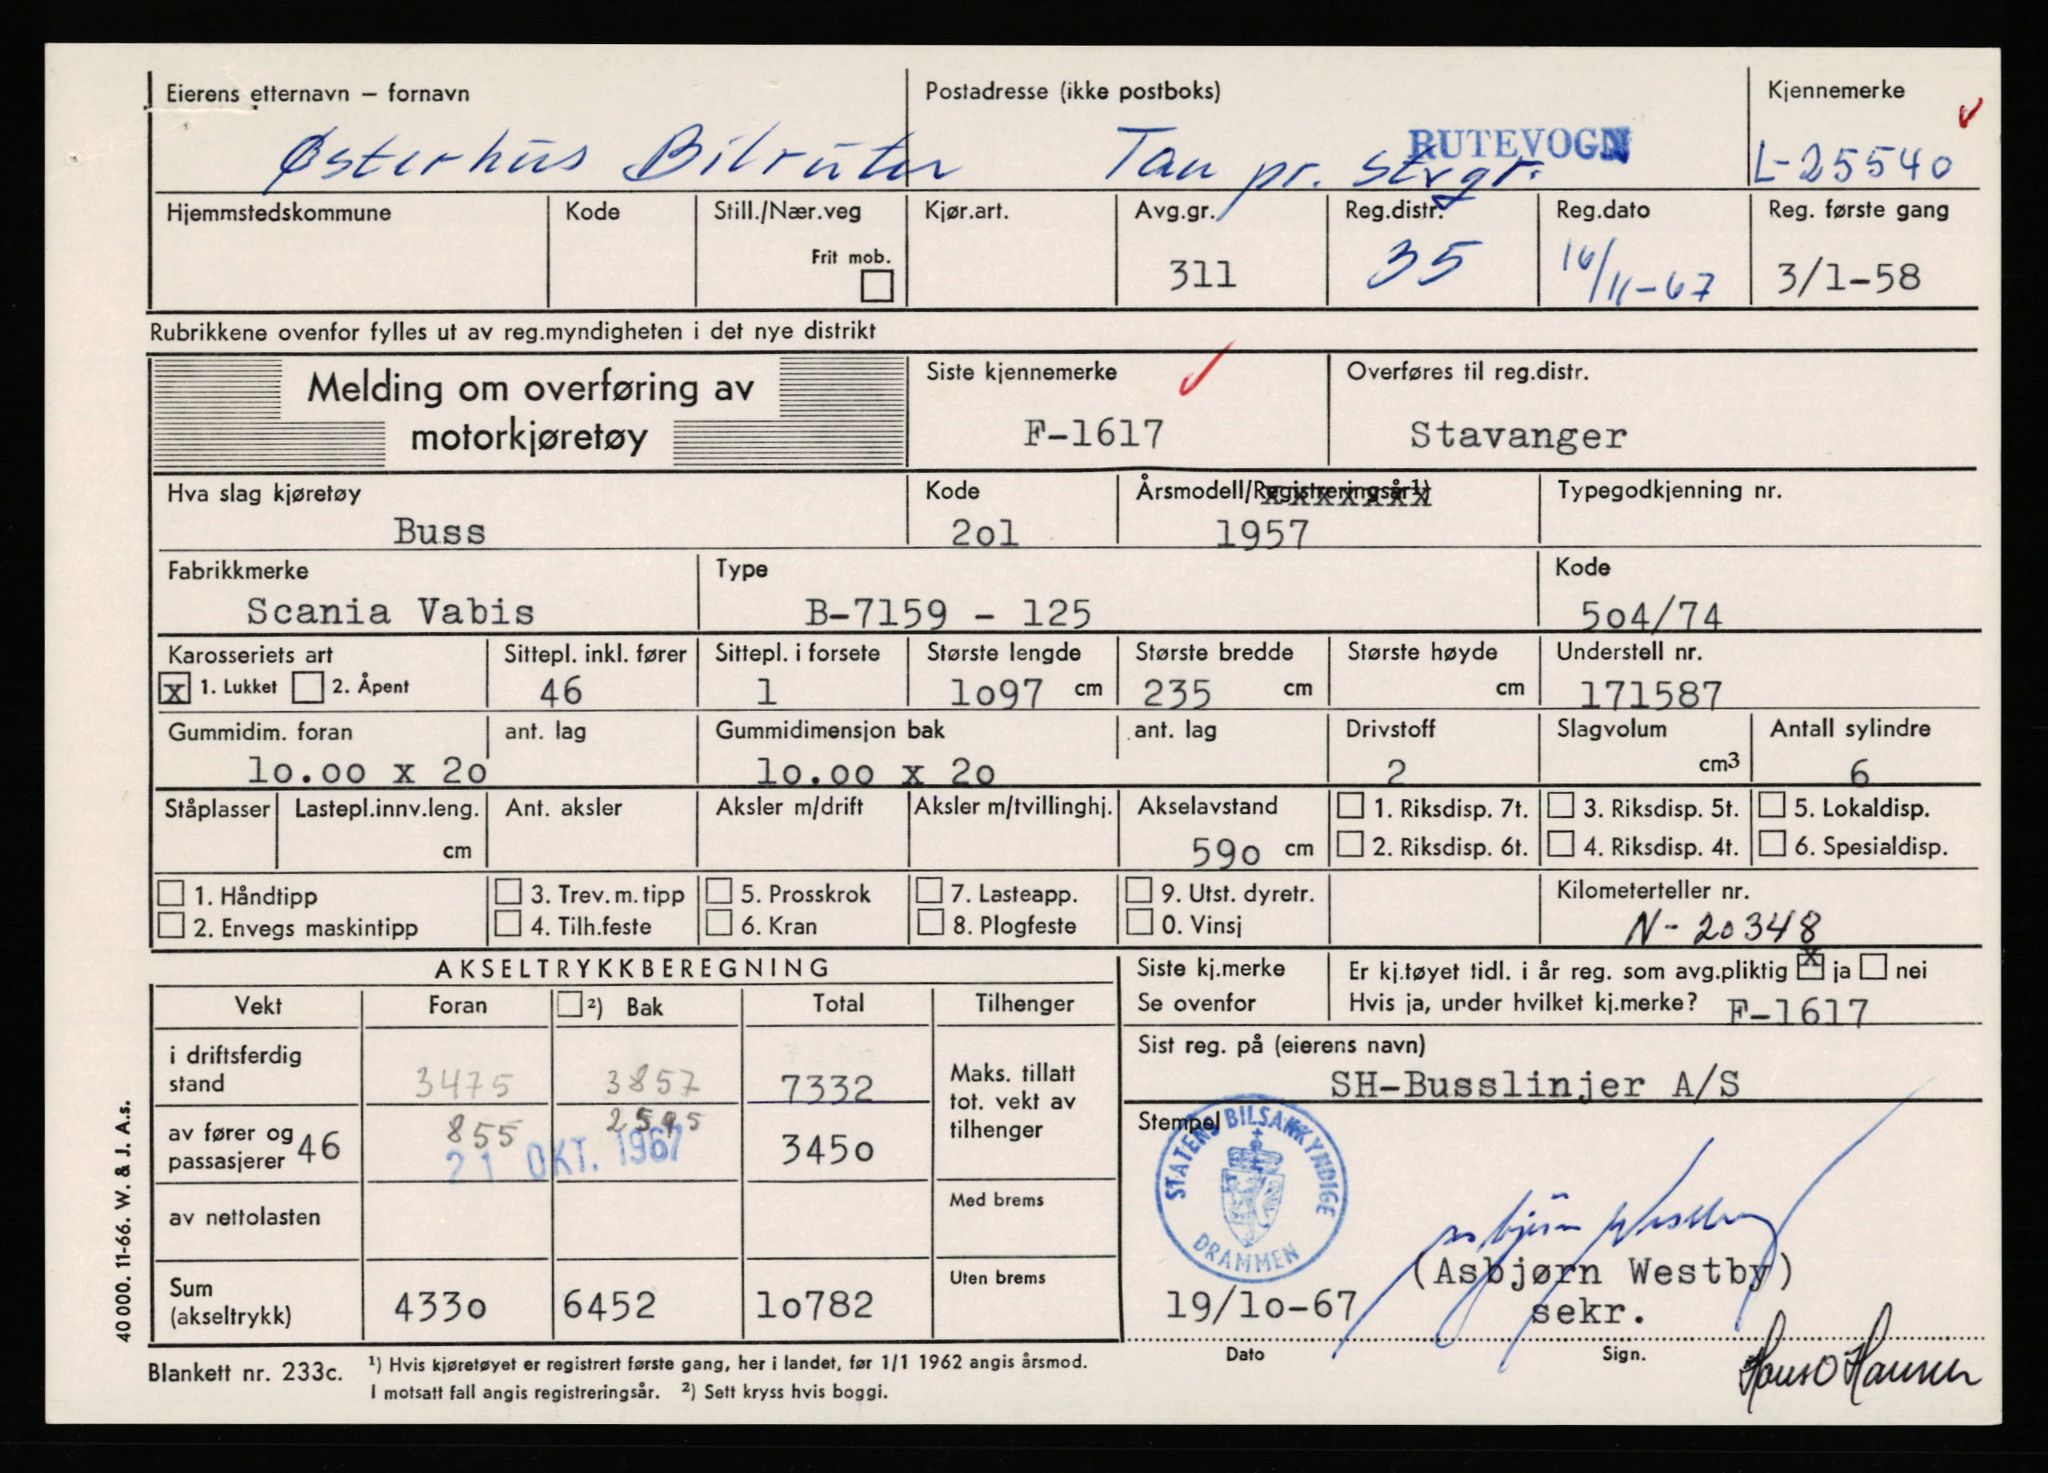 Eierens etternavn – fornavn Postadresse (ikke postboks) Kjennemerke
Østerhus Bilruter Tau pr. Stvgr. RUTEVOGN L-25540
Hjemmstedskommune Kode Still./Nær.veg Kjør.art. Avg.gr. Reg.distr. Reg.dato Reg. første gang
Frit mob. 311 35 16/11-67 3/1-58
Rubrikkene ovenfor fylles ut av reg.myndigheten i det nye distrikt
Melding om overføring av Siste kjennemerke Overføres til reg.distr.
motorkjøretøy F-1617 Stavanger
Hva slag kjøretøy Kode Årsmodell/Registreringsår¹) Typegodkjenning nr.
Buss 2o1 1957
Fabrikkmerke Type Kode
Scania Vabis B-7159 - 125 5o4/74
Karosseriets art Sittepl. inkl. fører Sittepl. i forsete Største lengde Største bredde Største høyde Understell nr.
x 1. Lukket 2. Åpent 46 1 1o97 cm 235 cm cm 171587
Gummidim. foran ant. lag Gummidimensjon bak ant. lag Drivstoff Slagvolum Antall sylindre
1o.oo x 2o 1o.oo x 2o 2 cm3 6
Ståplasser Lastepl.innv.leng. Ant. aksler Aksler m/drift Aksler m/tvillinghj. Akselavstand 1. Riksdisp. 7t. 3. Riksdisp. 5t. 5. Lokaldisp.
cm 59o cm 2. Riksdisp. 6t. 4. Riksdisp. 4t. 6. Spesialdisp.
1. Håndtipp 3. Trev.m.tipp 5. Prosskrok 7. Lasteapp. 9. Utst. dyretr. Kilometerteller nr.
2. Envegs maskintipp 4. Tilh.feste 6. Kran 8. Plogfeste 0. Vinsj N-20348
AKSELTRYKKBEREGNING Siste kj.merke Er kj.tøyet tidl. i år reg. som avg.pliktig x ja nei
Vekt Foran ²) Bak Total Tilhenger Se ovenfor Hvis ja, under hvilket kj.merke? F-1617
i driftsferdig stand 3475 3857 7332 Maks. tillatt tot. vekt av tilhenger Sist reg. på (eierens navn)
SH-Busslinjer A/S
av fører og passasjerer 46 855 2595 345o Stempel
21 OKT. 1967
STATENS BILSAKKYNDIGE DRAMMEN
av nettolasten Med brems
Asbjørn Westby
(Asbjørn Westby)
Sum (akseltrykk) 433o 6452 1o782 Uten brems 19/1o-67 sekr.
Dato Sign. Hans O Hansen
Blankett nr. 233c. ¹) Hvis kjøretøyet er registrert første gang, her i landet, før 1/1 1962 angis årsmod.
I motsatt fall angis registreringsår. ²) Sett kryss hvis boggi.
40000. 11-66. W. & J. A.s.